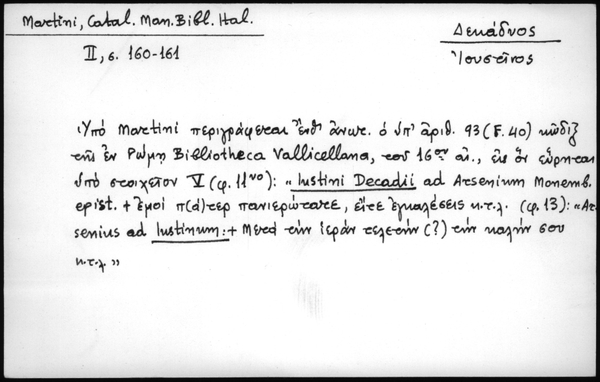 Martini, Catal. Man. Bibl. Ital.
II, σ. 160-161
Δεκάδυος
Ἰουστῖνος
Ὑπὸ Martini περιγράφεται ἔνθ' ἀνωτ. ὁ ὑπ' ἀριθ. 93 (F. 40) κῶδιξ
τῆς ἐν Ρώμῃ Bibliotheca Vallicellana, τοῦ 16ου αἰ., εἰς ὃν εὕρηται
ὑπὸ στοιχεῖον V (φ. 11νο): « Iustini Decadii ad Arsenium Monemb.
epist. + ἐμοὶ π(ά)τερ πανιερώτατε, εἴτε ἐγκαλέσεις κ.τ.λ. (φ. 13): «Ar-
senius ad Iustinum: + Μετὰ τὴν ἱερὰν τελετὴν (?) τὴν καλήν σου
κ.τ.λ. »